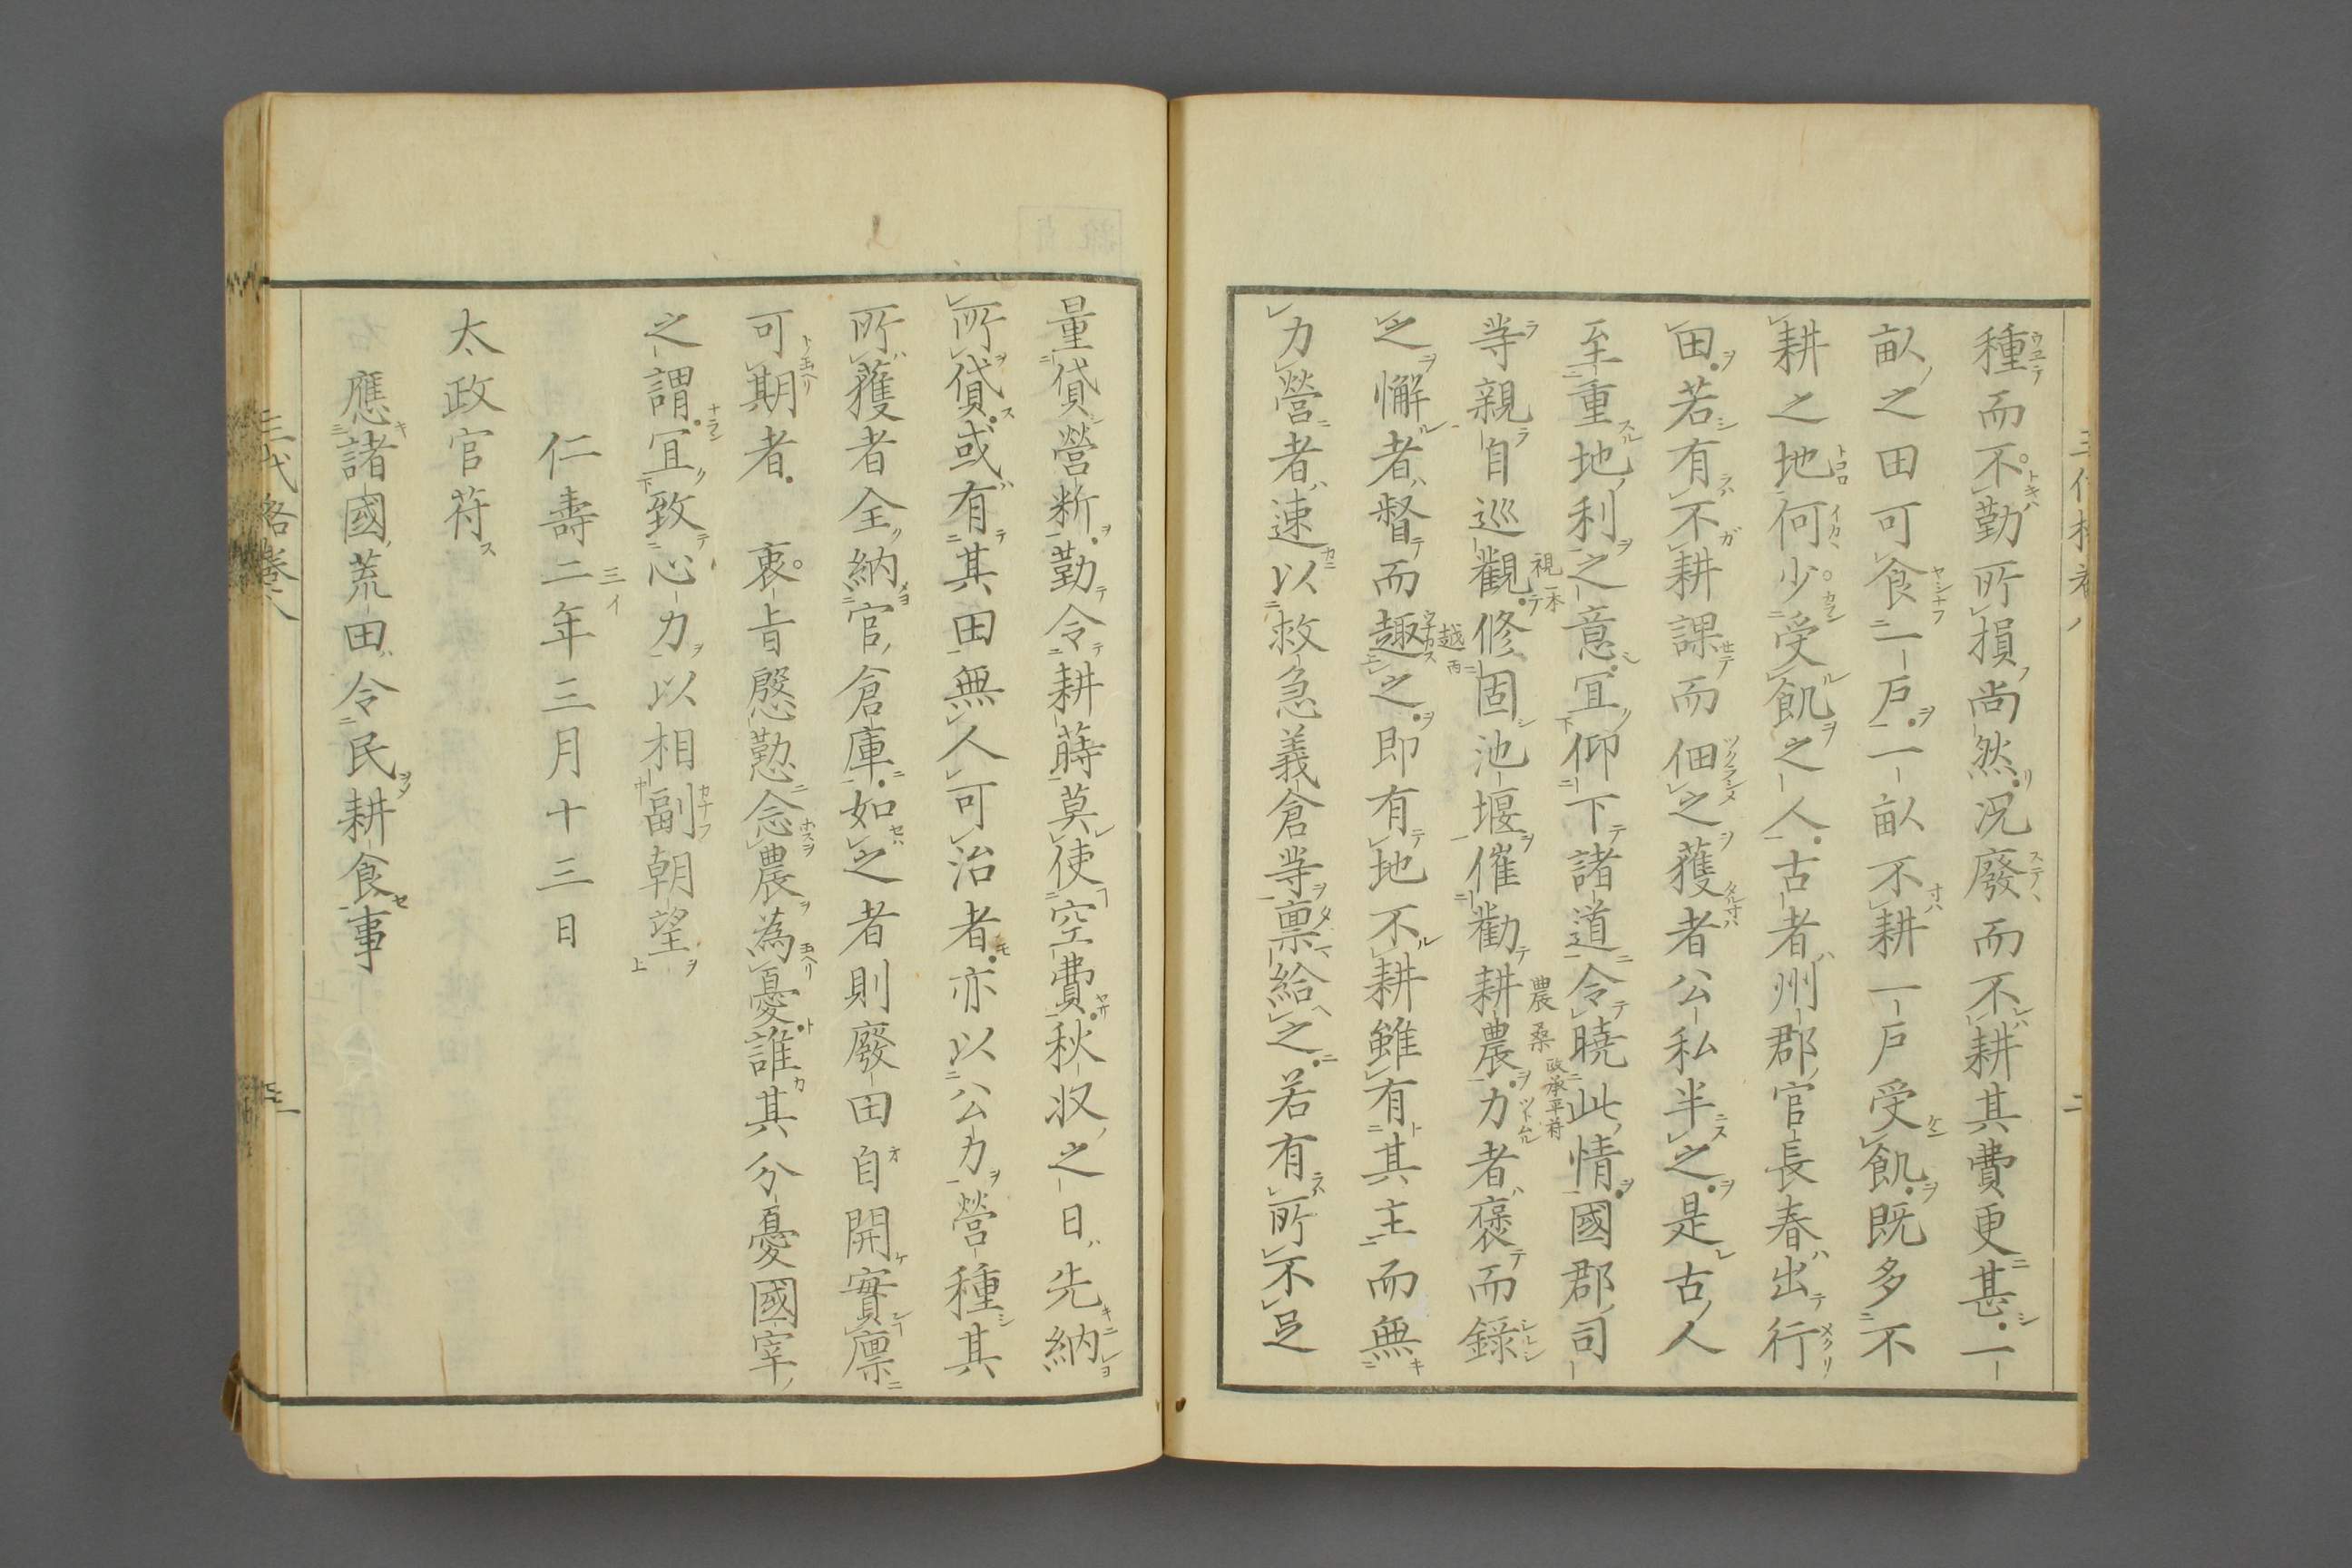 種而不勤所損尚然況廢而不耕其費更甚一
畝之田可食一戸一畝不耕一戸受飢既多不
耕之地何少受飢之人古者州郡官長春出行
田若有不耕課而佃之獲者公私半之是古人
至重地利之意宜仰下諸道令曉此情國郡司
等親自巡觀修固池堰催勸耕農力者褒而録
之懈者督而趣之即有地不耕雖有其主而無
力營者速以救急義倉等稟給之若有所不足
量貸營料勤令耕蒔莫使空費秋収之日先納
所貸或有其田無人可治者亦以公力營種其
所獲者全納官倉庫如之者則廢田自開實廩
可期者 衷旨慇懃念農為憂誰其分憂國宰
之謂宜致心力以相副朝望
仁壽二年三月十三日
太政官符
應諸國荒田令民耕食事
三代格卷八